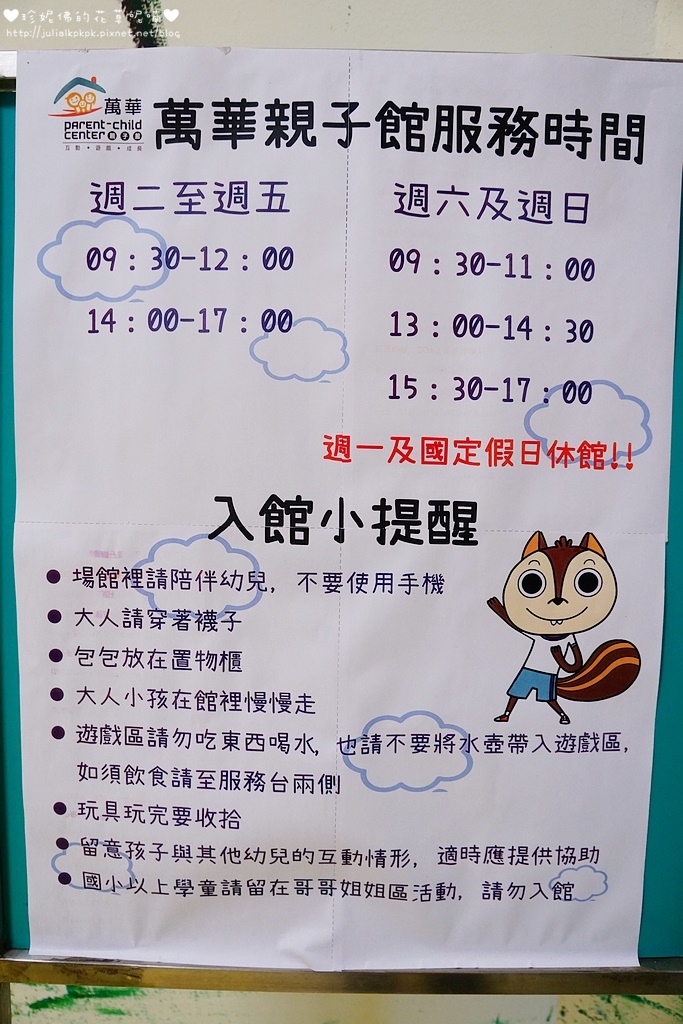 ♥珍妮佛的花草呢喃♥
http://julialkpkpk.pixnet.net/blog
萬華
parent-child
center 親子館
互動•遊戲•成長
萬華親子館服務時間
週二至週五
09：30-12：00
14：00-17：00
週六及週日
09：30-11：00
13：00-14：30
15：30-17：00
週一及國定假日休館!!
入館小提醒
● 場館裡請陪伴幼兒，不要使用手機
● 大人請穿著襪子
● 包包放在置物櫃
● 大人小孩在館裡慢慢走
● 遊戲區請勿吃東西喝水，也請不要將水壺帶入遊戲區，
如須飲食請至服務台兩側
● 玩具玩完要收拾
● 留意孩子與其他幼兒的互動情形，適時應提供協助
● 國小以上學童請留在哥哥姐姐區活動，請勿入館